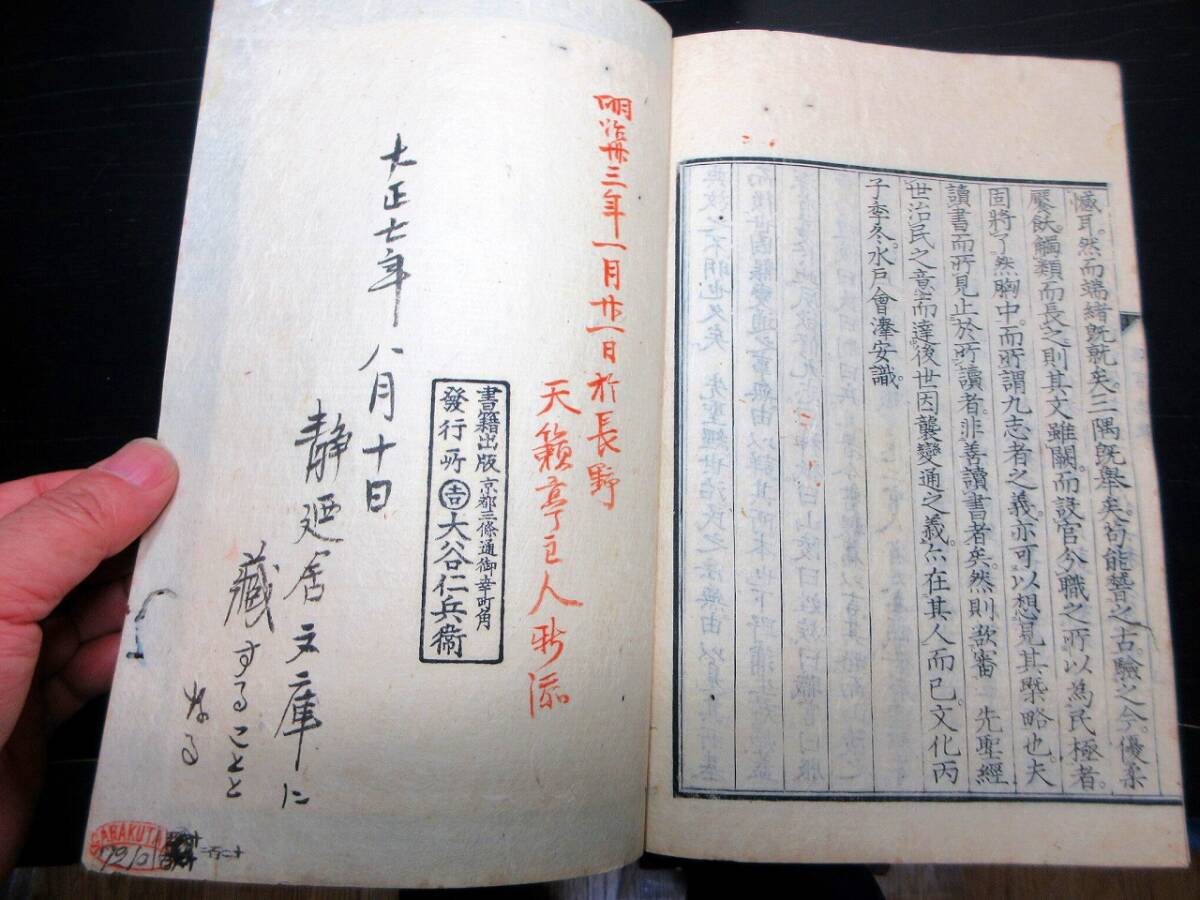 憾耳。然而端緒既就矣。三隅既舉矣。苟能替之古。驗之今。優柔
饜飫。觸類而長之。則其文雖闕。而設官分職之所以為民極者。
固將了然胸中。而所謂九志者之義。亦可以想見其槩略也。夫
讀書而所見止於所讀者。非善讀書者矣。然則欲審 先聖經
世治民之意。而達後世因襲變通之義。亦在其人而已。文化丙
子季冬。水戶會澤安識。
明治卅三年一月廿一日於長野
天籟亭主人
書籍出版 京都三條通御幸町角
發行所 吉 大谷仁兵衞
大正七年八月十日
静廼舎文庫に
藏することと
なる
GARAKUTA